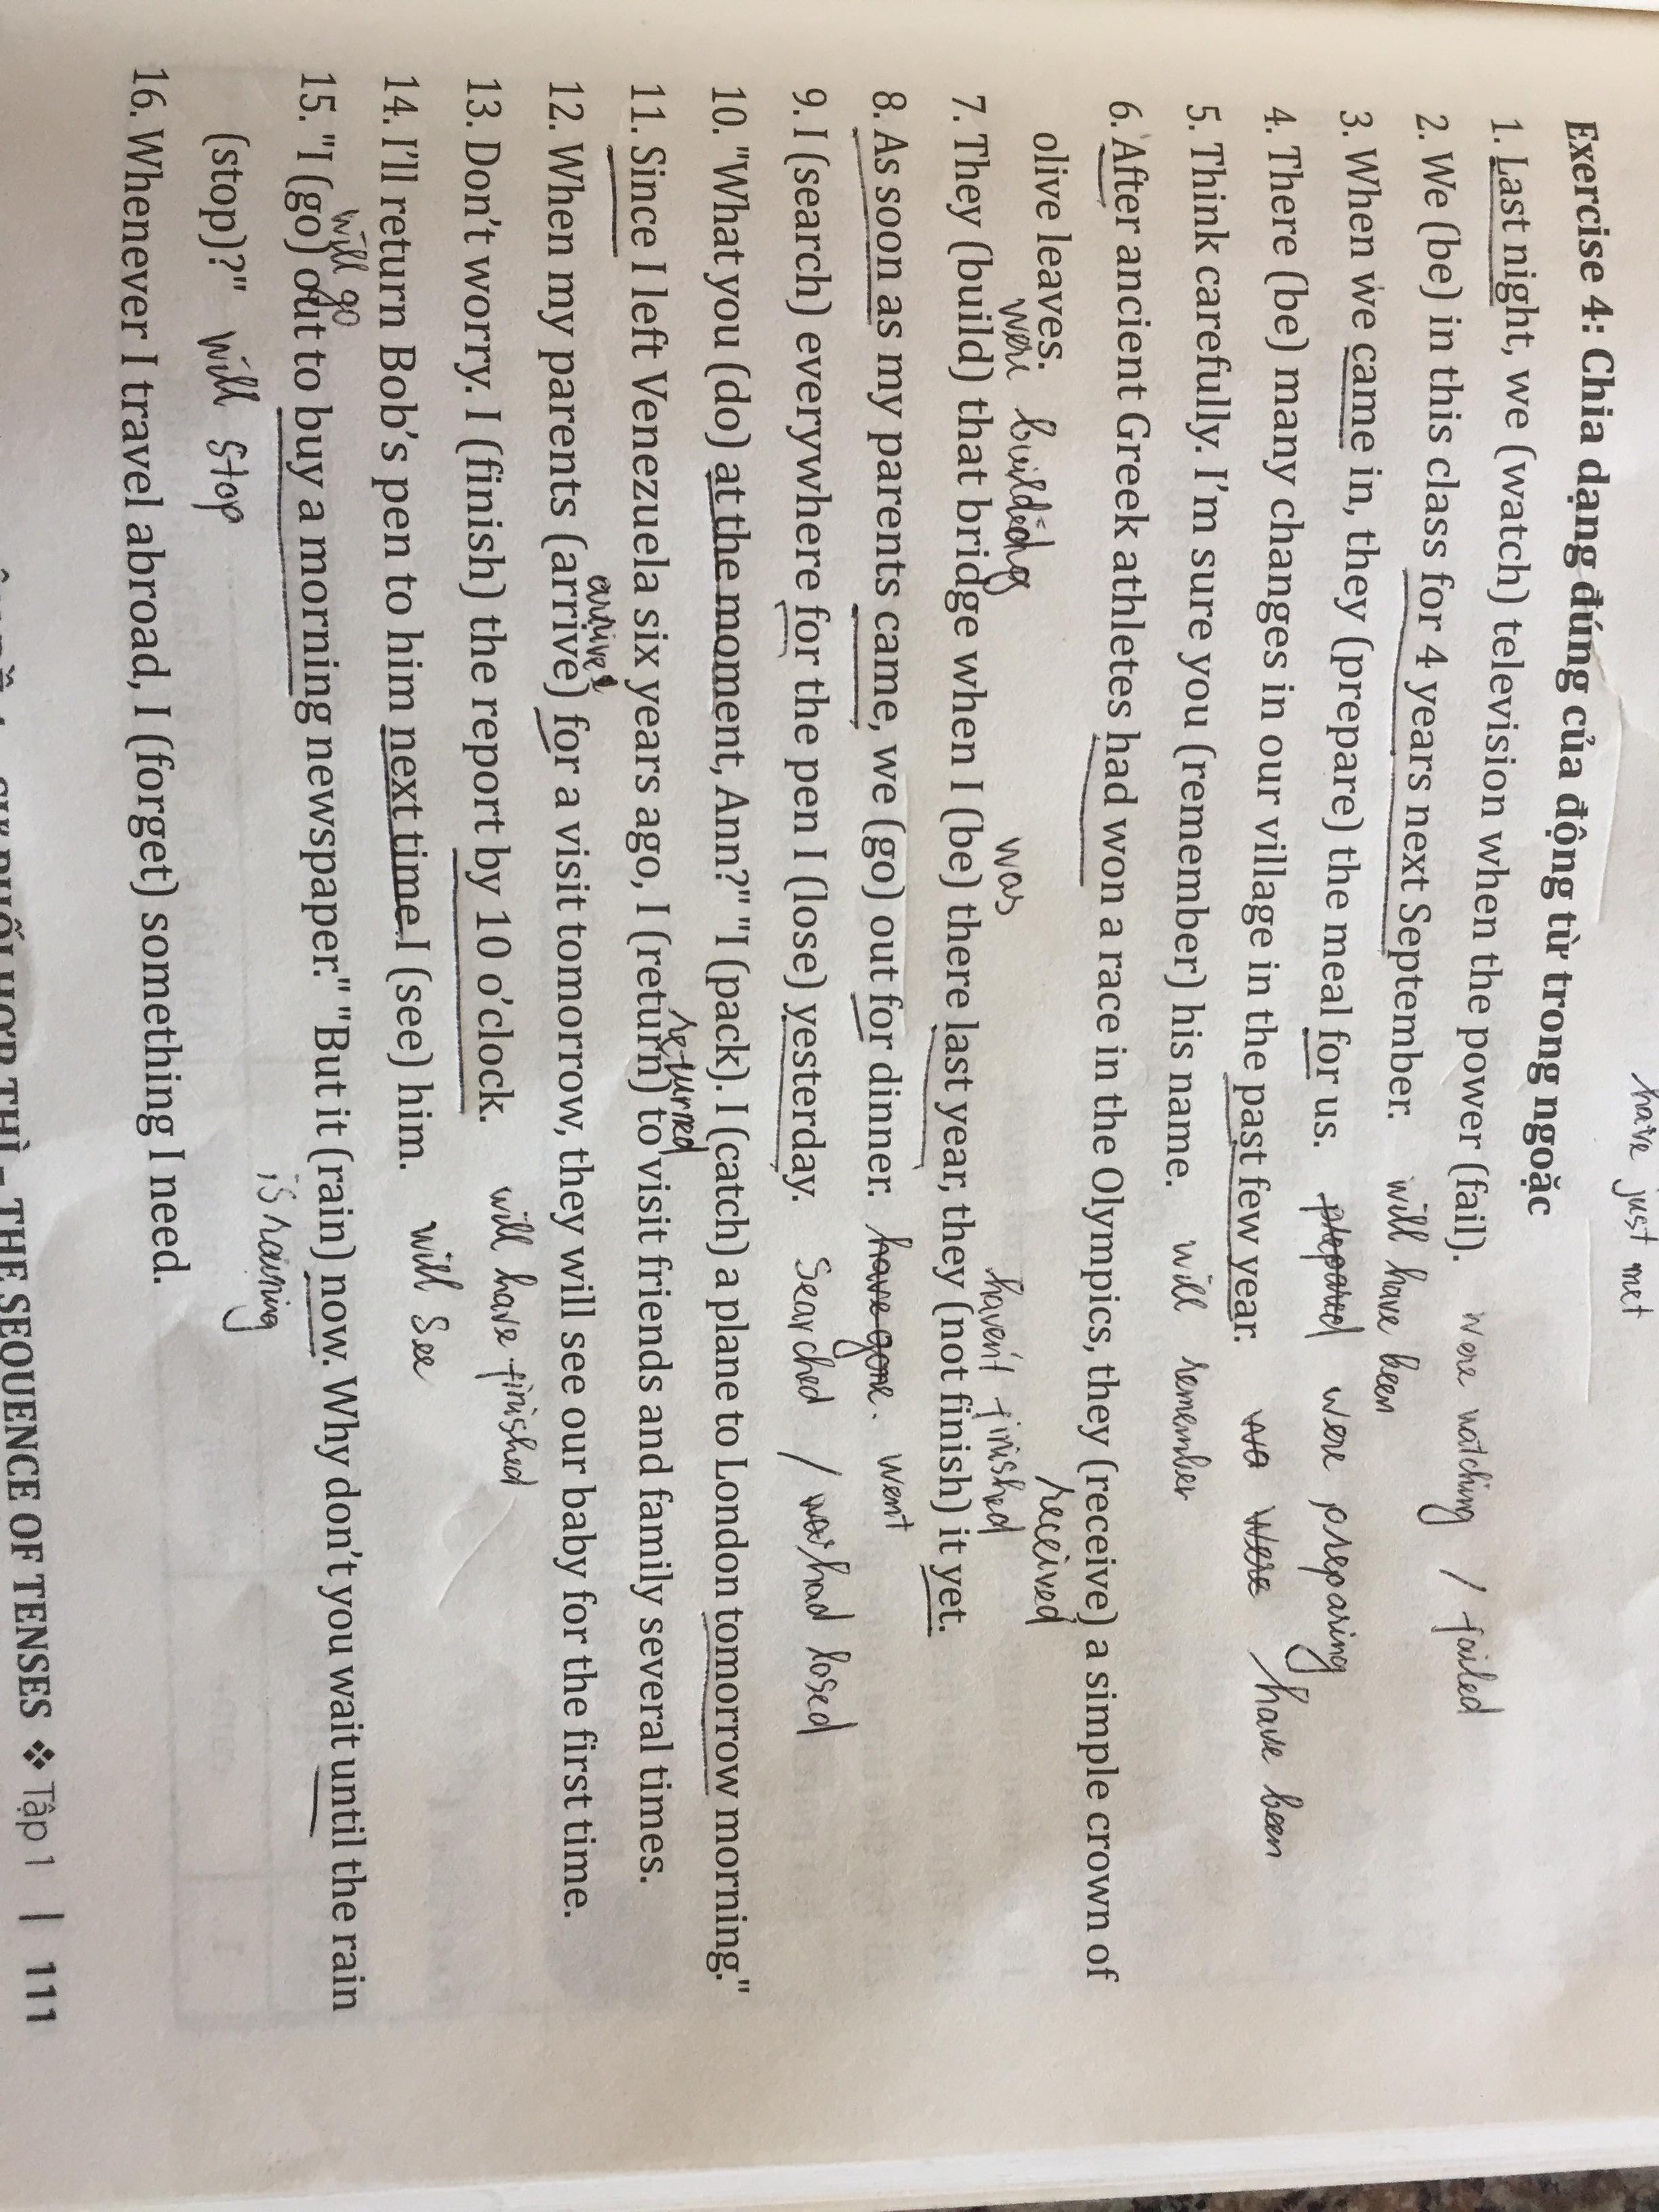 have just met
Exercise 4: Chia dạng đúng của động từ trong ngoặc
1. Last night, we (watch) television when the power (fail). were watching / failed
2. We (be) in this class for 4 years next September. will have been
3. When we came in, they (prepare) the meal for us. prepared were preparing
4. There (be) many changes in our village in the past few year. were have been
5. Think carefully. I'm sure you (remember) his name. will remember
6. After ancient Greek athletes had won a race in the Olympics, they (receive) a simple crown of
received
olive leaves.
were building was haven't finished
7. They (build) that bridge when I (be) there last year, they (not finish) it yet.
8. As soon as my parents came, we (go) out for dinner. have gone. went
9. I (search) everywhere for the pen I (lose) yesterday. searched / had losed
10. "What you (do) at the moment, Ann?" "I (pack). I (catch) a plane to London tomorrow morning."
returned
11. Since I left Venezuela six years ago, I (return) to visit friends and family several times.
arrive
12. When my parents (arrive) for a visit tomorrow, they will see our baby for the first time.
13. Don't worry. I (finish) the report by 10 o'clock. will have finished
14. I'll return Bob's pen to him next time I (see) him. will see
15. "I (go) out to buy a morning newspaper." "But it (rain) now. Why don't you wait until the rain
will go is raining
(stop)?" will stop
16. Whenever I travel abroad, I (forget) something I need.
THÌ - THE SEQUENCE OF TENSES ❖ Tập 1 | 111